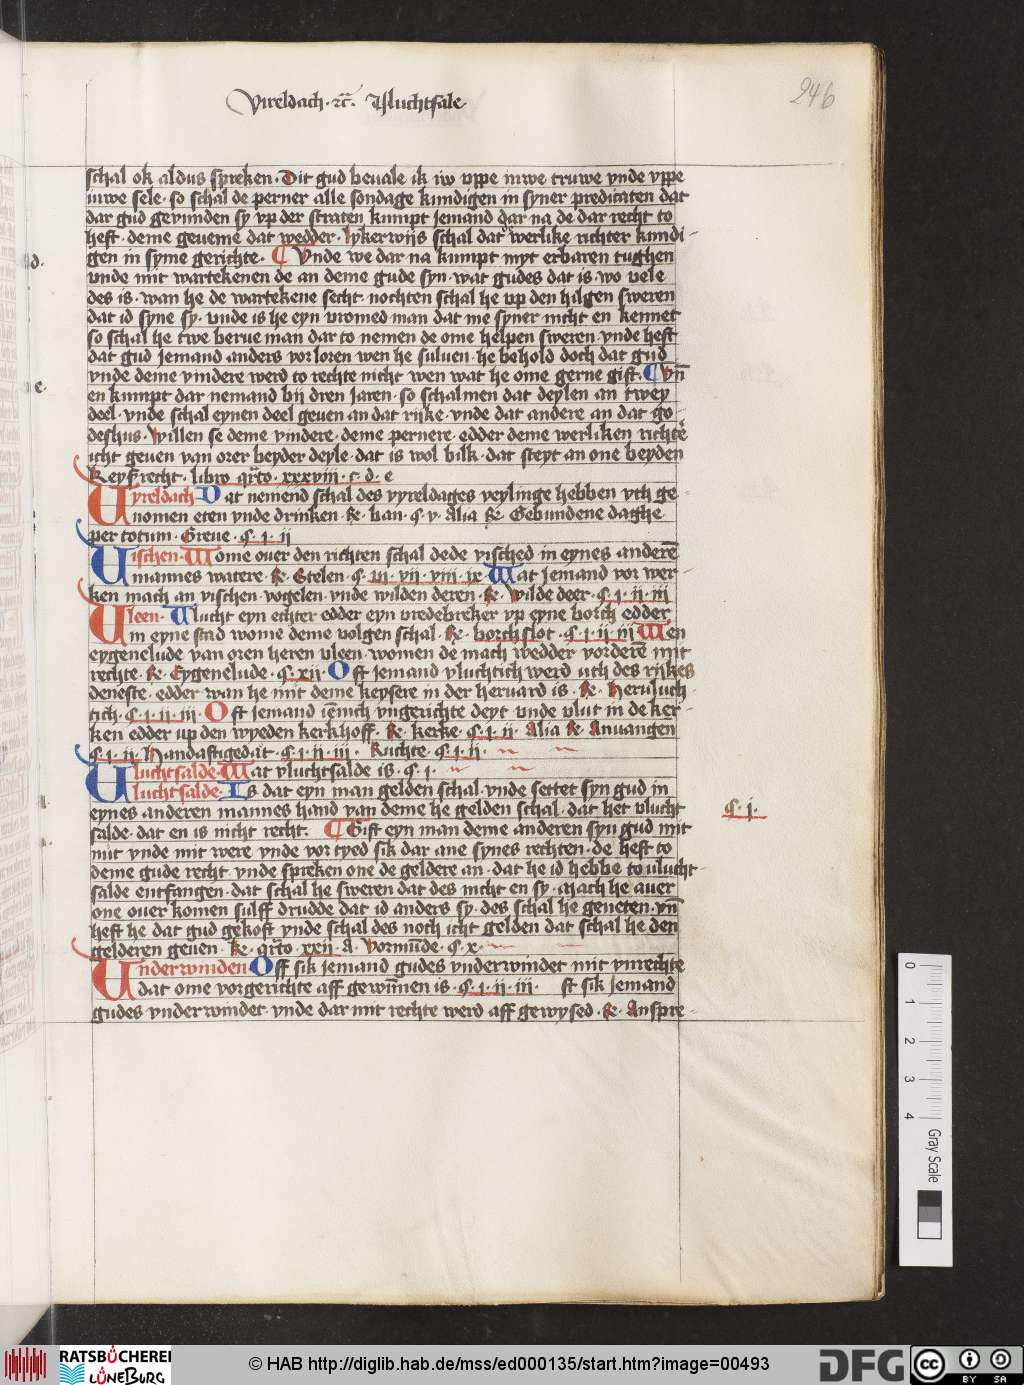 Vireldach · ꝛc̄ · Vluchtsale
246
schal ok aldus spreken · Dit gud beuale ik iw vppe inwe truwe vnde vppe
inwe sele · so schal de perner alle sondage kundigen in syner predicaten dat
dar gud geuunden sy vp der straten kumpt jemand dar na de dar recht to
heft · deme geueme dat wedder · lykerwijs schal dat werlike richter kundi-
gen in syme gerichte · ¶ Vnde we dar na kumpt myt erbaren tughen
vnde mit wartekenen de an deme gude syn · wat gudes dat is · wo vele
des is · wan he de wartekene secht · nochten schal he vp den hilgen sweren
dat id syne sy · vnde is he eyn vromed man dat me syner nicht en kennet
so schal he twe berue man dar to nemen de ome helpen sweren · vnde heft
dat gud jemand anders vorloren wen he suluen · he behold doch dat gud
vnde deme vindere werd to rechte nicht wen wat he ome gerne gift · ¶ Vn̄
en kumpt dar nemand bij dren jaren · so schalmen dat deylen an twey
deel · vnde schal eynen deel geuen an dat rijke · vnde dat andere an dat go-
deshus · Willen se deme vindere · deme pernere · edder deme werliken richte
icht geuen van orer beyder deyle · dat is wol bilk · dat steyt an one beyden
Keyserrecht · libro qrto · xxxviii · c · d · e
Vyreldach Dat nemend schal des vyreldages veylinge hebben vth ge-
nomen eten vnde drinken · Re · ban · ꝯ · v · Alia Re Gebundene daghe
per totum · Greue · ꝯ · i · ii
Visschen · Wome ouer den richten schal dede vissched in eynes anderē
mannes watere · Re · Stelen · ꝯ · iii · vii · viii · ix Wat jemand vor wer-
ken mach an vischen · vogelen · vnde wilden deren · Re · Wilde deer · ꝯ · i · ii · iii
Vleen · Vlucht eyn echter edder eyn vredebreker vp eyne borch edder
in eyne stad wome deme volgen schal · Re · borchslot · ꝯ · i · ii · iii Wen
eygenelude van oren heren vleen · women de mach wedder vorderē mit
rechte · Re · Eygenelude · ꝯ · xii · Oft jemand vluchtich werd vth des rijkes
deneste · edder wan he mit deme keysere in der heruard is · Re · Heruluch-
tich · ꝯ · i · ii · iii · Oft jemand iēnich vngerichte deyt vnde vlut in de ker-
ken edder up den wyeden kerkhoff · Re · kerke · ꝯ · i · ii · Alia Re · Anuangen
ꝯ · i · ii · Handaftigedāt · ꝯ · i · ii · iii · Ruchte · ꝯ · i · ii ·
Vluchtsalde · Wat vluchtsalde is · ꝯ · i ·
Vluchtsalde · Is dat eyn man gelden schal · vnde settet syn gud in
eynes anderen mannes hand van deme he gelden schal · dat het vlucht
salde · dat en is nicht recht · ¶ Gift eyn man deme anderen syn gud mit
nut vnde mit were vnde vor tyed sik dar ane synes rechten · de heft to
deme gude recht vnde spreken one de geldere an · dat he id hebbe to vlucht-
salde entfangen · dat schal he sweren dat des nicht en sy · Mach he auer
one ouer komen sulff drudde dat id anders sy · des schal he geneten · vn̄
heft he dat gud gekoft vnde schal des noch icht gelden dat schal he den
gelderen geuen · Re · qrto · xxii · A · Vormūde · ꝯ · x ·
ꝯ · i ·
Vnderwinden Off sik jemand gudes vnderwindet mit vnrechte
dat ome vorgerichte aff gewūnen is · ꝯ · i · ii · iii · ft sik jemand
gudes vnderwindet · vnde dar mit rechte werd aff gewysed · Re · Anspre-
d.
e.
0 1 2 3 4
Gray Scale
RATSBÜCHEREI
LÜNEBURG
© HAB http://diglib.hab.de/mss/ed000135/start.htm?image=00493
DFG
cc BY SA